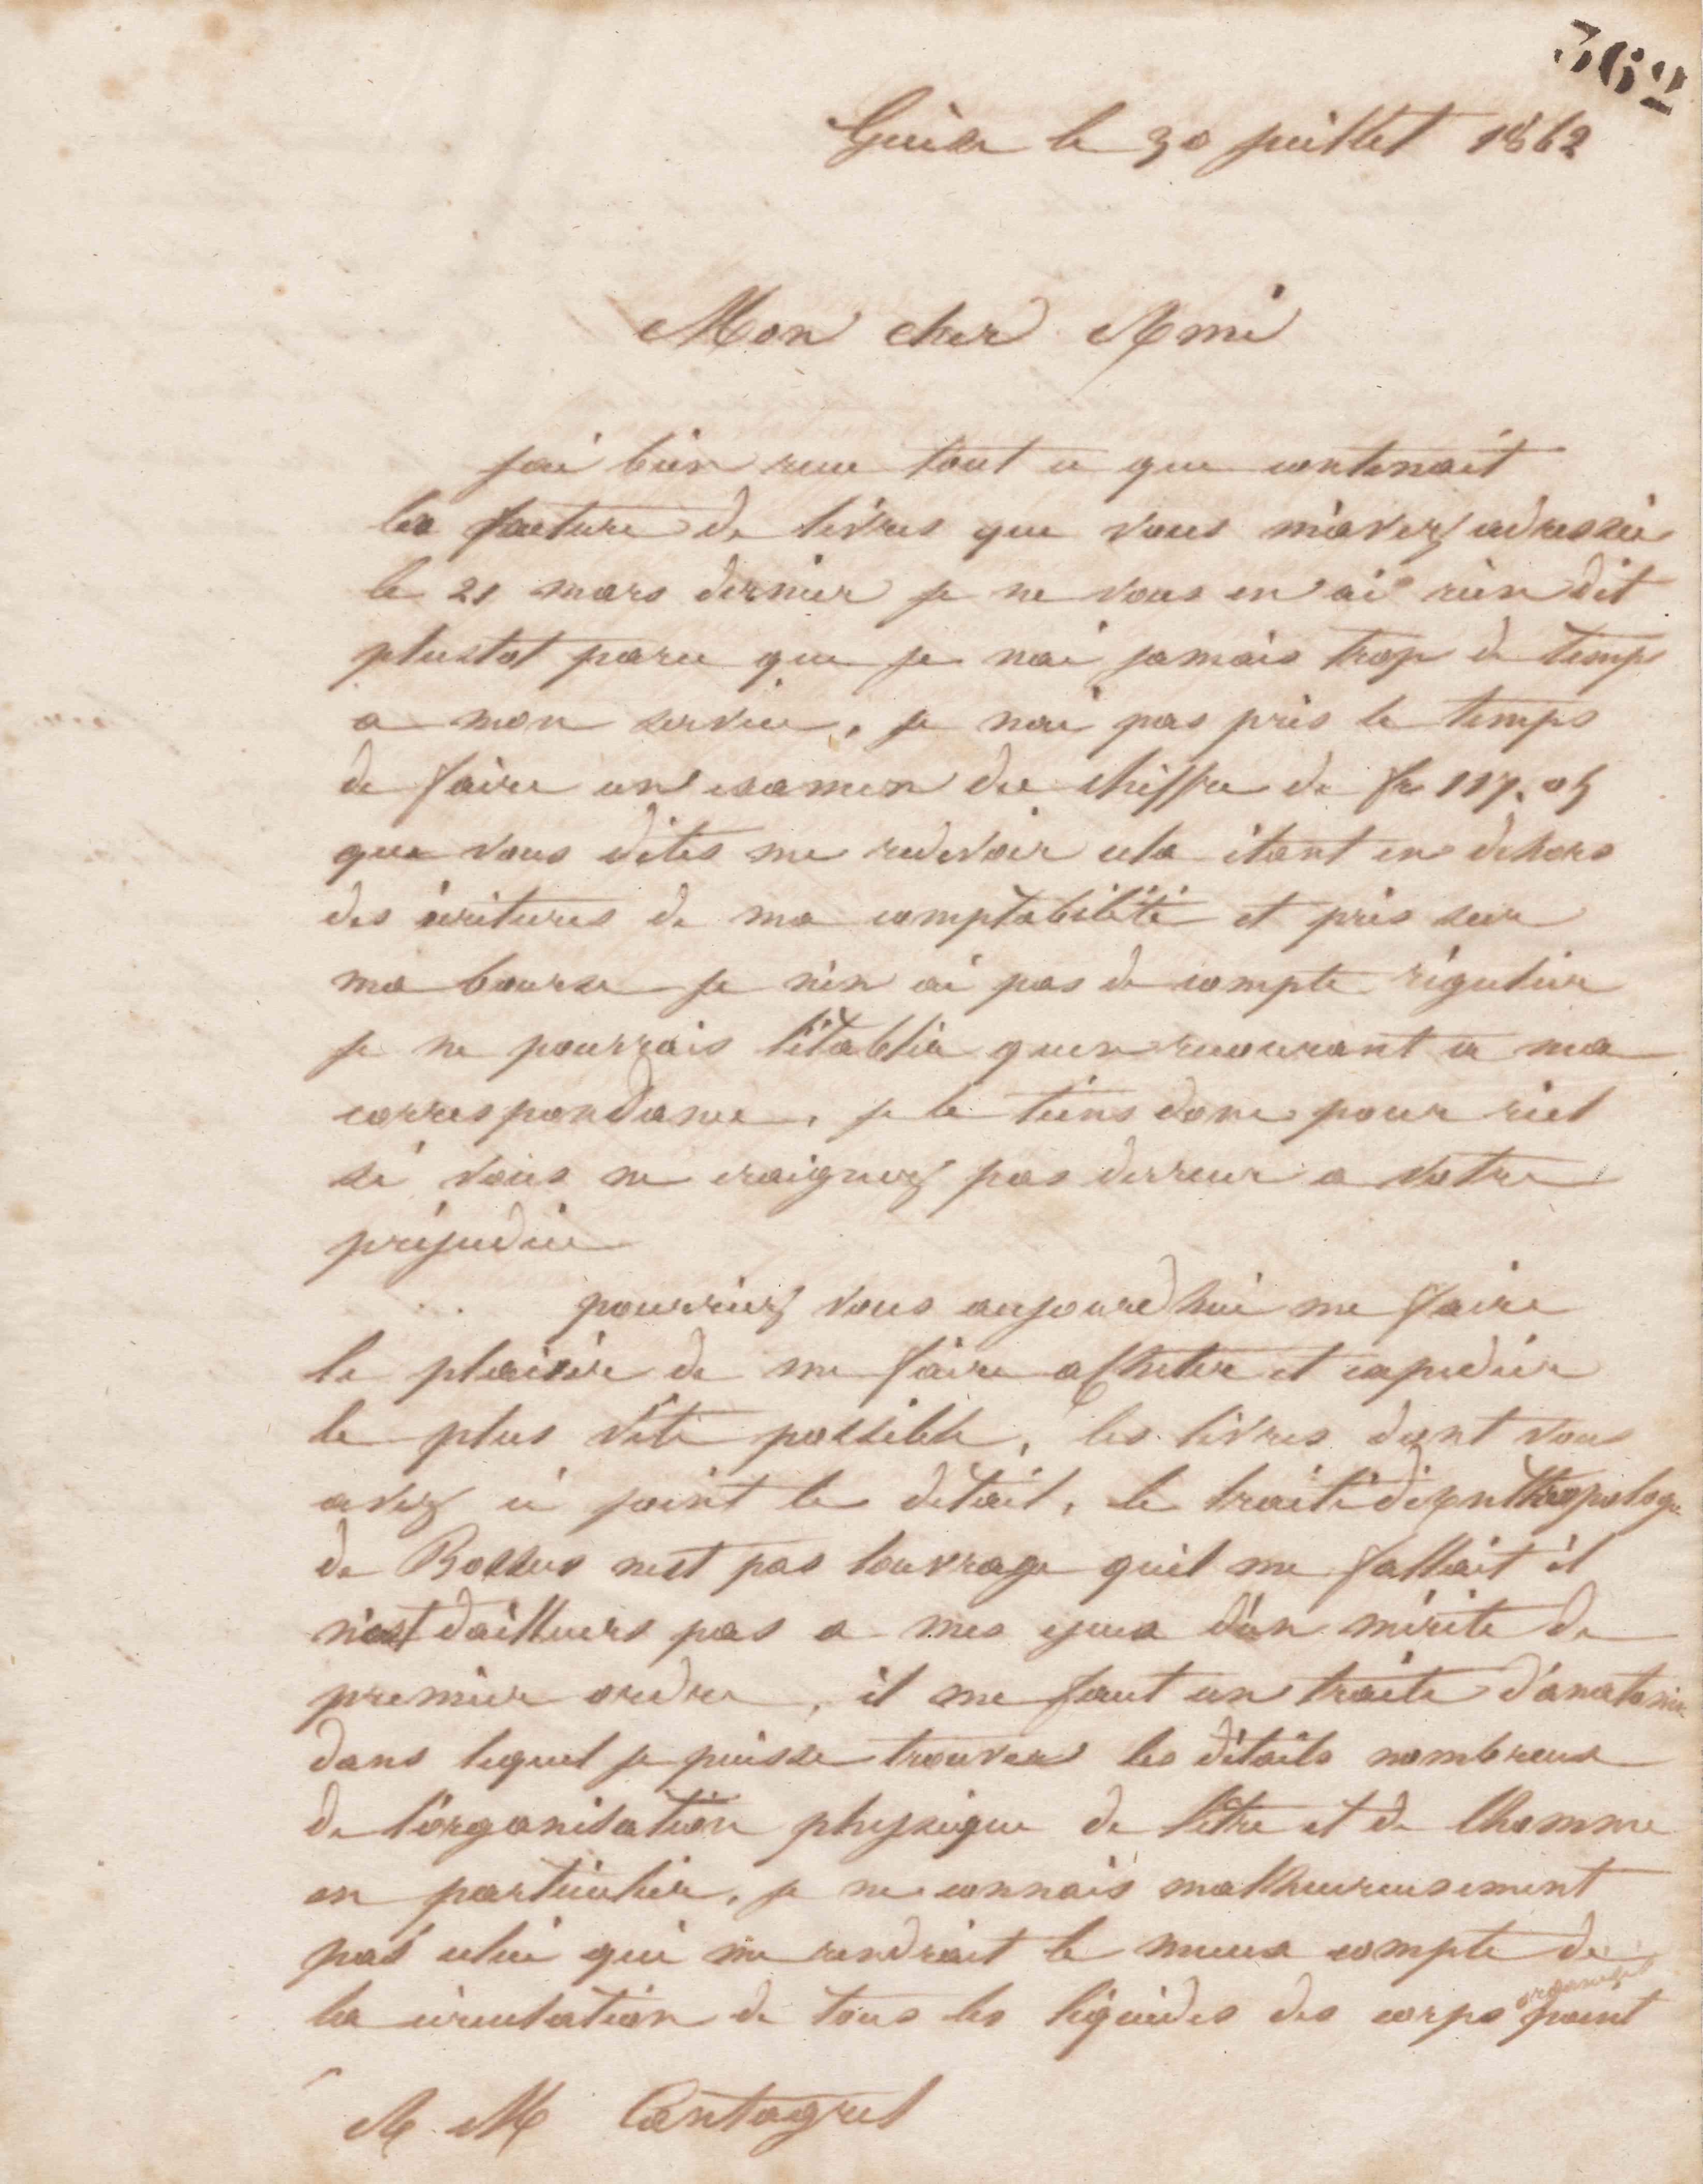 362
Guise le 30 juillet 1862
Mon cher Ami
jai bien recu tout ce que contenait
la facture de livres que vous m'avez adressée
le 21 mars dernier je ne vous en ai rien dit
plustot parce que je nai jamais trop de temps
a mon service, je nai pas pris le temps
de faire un examen du chiffre de fr 117.05
que vous dites me redevoir cela étant en dehors
des écritures de ma comptabilité et pris sur
ma bourse je n'en ai pas de compte régulier
je ne pourrais l'établir quen recourant a ma
correspondance, je le tiens donc pour réel
si vous ne craignez pas derreur a votre
préjudice
pourriez vous aujourdhui me faire
le plaisir de me faire acheter et expedier
le plus vite possible, les livres dont vous
avez ci joint le détail, le traité d'antropologie
de Bossus nest pas louvrage quil me fallait il
n'est dailleurs pas a mes yeux d'un mérite de
premier ordre, il me faut un traité d'anatomie
dans lequel je puisse trouver les détails nombreux
de l'organisation physique de l'être et de lhomme
en particulier, je ne connais malheureusement
pas celui qui me rendrait le mieux compte de
la circulation de tous les liquides des corps organisés
A M Cantagrel